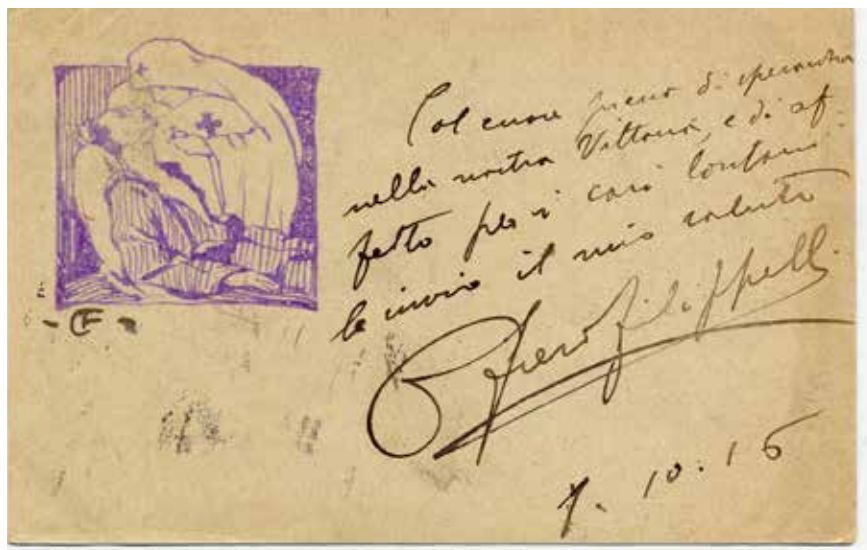 Col cuore pieno di speranza
nella nostra Vittoria, e di af-
fetto per i cari lontani
le invio il mio saluto
Piero Filippelli
7. 10. 15
CF